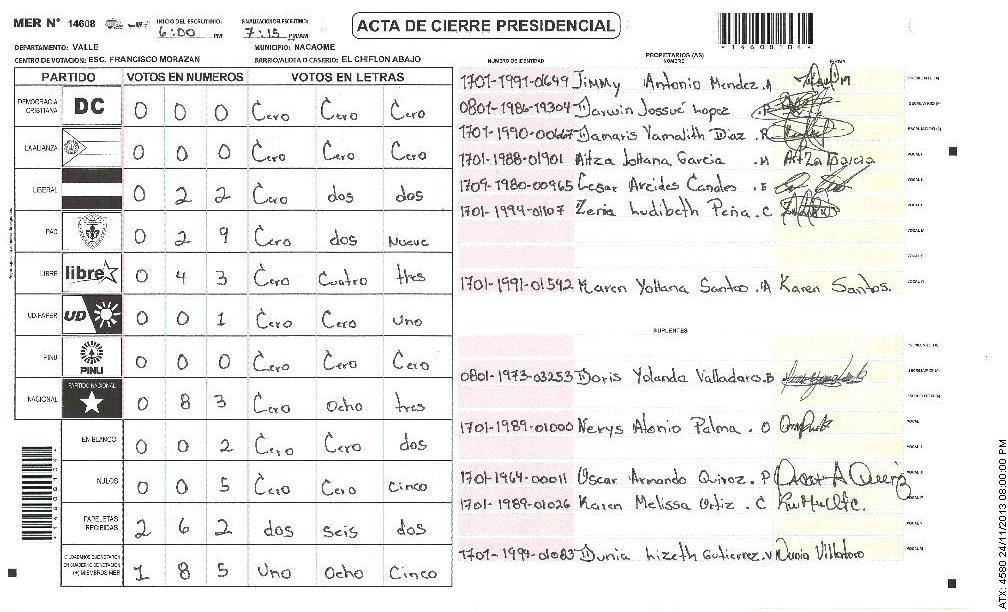 MER N° 14608
INICIO DEL ESCRUTINIO: 6:00 PM
FINALIZACION DEL ESCRUTINIO: 7:15 PM/AM
ACTA DE CIERRE PRESIDENCIAL
14608104
DEPARTAMENTO: VALLE
MUNICIPIO: NACAOME
CENTRO DE VOTACION: ESC. FRANCISCO MORAZAN
BARRIO/ALDEA O CASERIO: EL CHIFLON ABAJO
PARTIDO VOTOS EN NUMEROS VOTOS EN LETRAS
DEMOCRACIA CRISTIANA DC 0 0 0 Cero Cero Cero
LA ALIANZA 0 0 0 Cero Cero Cero
LIBERAL 0 2 2 Cero dos dos
PAC 0 2 9 Cero dos Nueve
LIBRE libre 0 4 3 Cero Cuatro tres
UD-FAPER UD 0 0 1 Cero Cero Uno
PINU PINU 0 0 0 Cero Cero Cero
NACIONAL PARTIDO NACIONAL 0 8 3 Cero Ocho tres
EN BLANCO 0 0 2 Cero Cero dos
NULOS 0 0 5 Cero Cero Cinco
PAPELETAS RECIBIDAS 2 6 2 dos seis dos
CIUDADANOS QUE VOTARON EN CUADERNO DE VOTACION (+) MIEMBROS MER 1 8 5 Uno Ocho Cinco
PROPIETARIOS (AS)
NUMERO DE IDENTIDAD NOMBRE FIRMA
1701-1991-01649 Jimmy Antonio Mendez .A
0801-1986-19304 Darwin Jossué Lopez .R
1701-1990-00667 Damaris Yamalith Diaz .R
1701-1988-01901 Aitza Johana Garcia .M Aitza Garcia
1709-1980-00965 Cesar Arcides Canales .E
1701-1994-01107 Zenia Ludibeth Peña .C
1701-1991-01592 Karen Yohana Santos .A Karen Santos.
SUPLENTES
0801-1973-03253 Doris Yolanda Valladares.B
1701-1989-01000 Nerys Alonio Palma . O
1701-1964-00011 Oscar Armando Quiroz . P Oscar A Quiroz
1701-1989-01026 Karen Melissa Ortiz . C
1701-1994-01083 Dunia Lizeth Gutierrez.V Dunia Villatoro
ATX: 4580 24/11/2013 08:00:00 PM